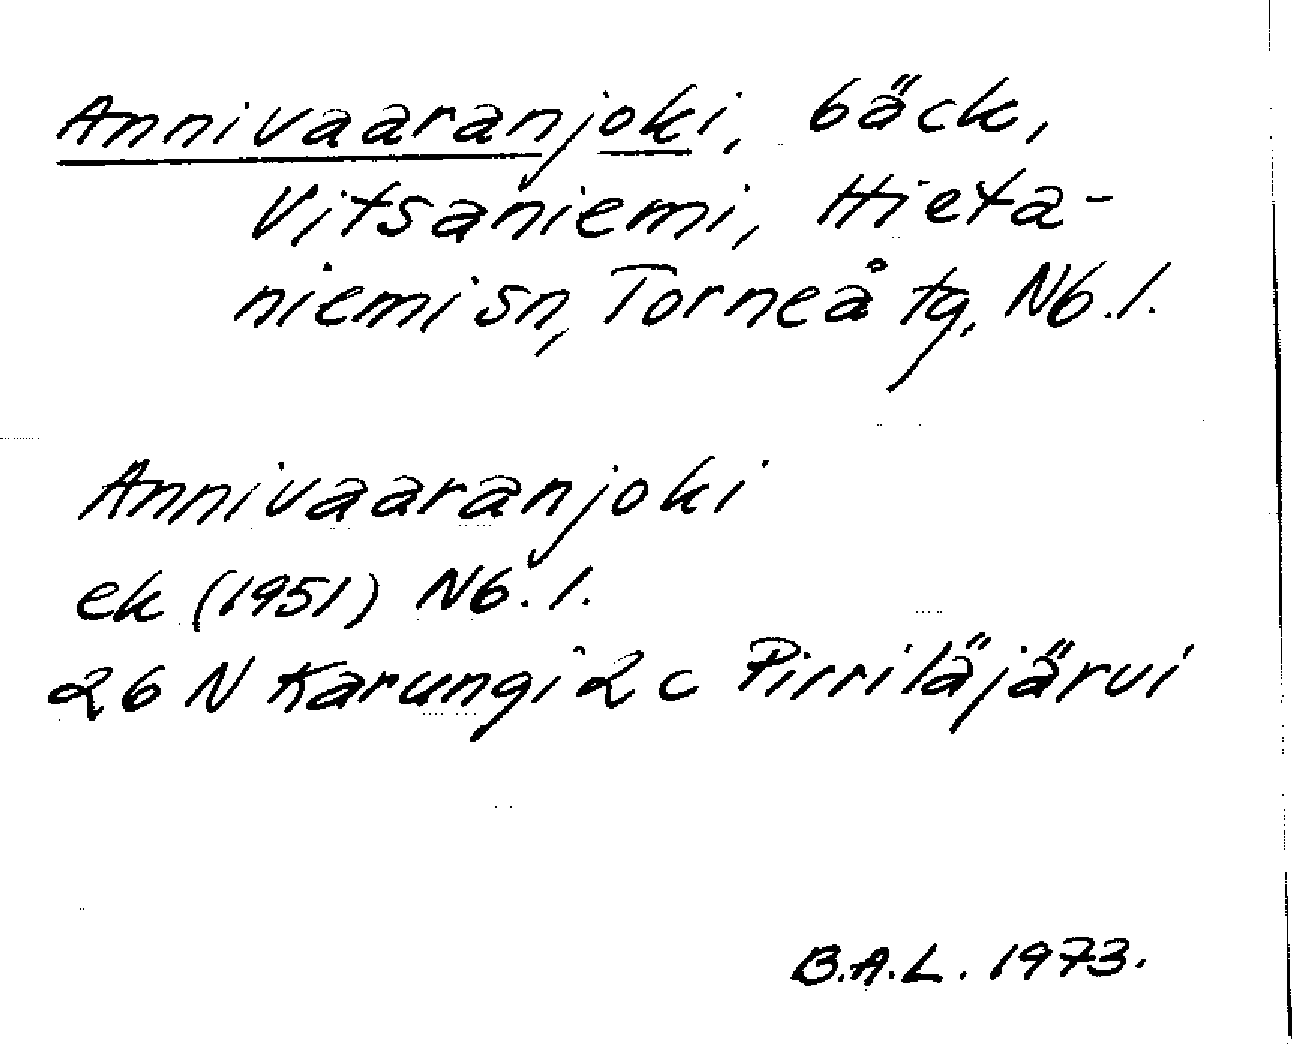 Annivaaranjoki, bäck,
Vitsaniemi, Hieta-
niemi sn, Torneå tg, Nb.l.
Annivaaranjoki
ek (1951) Nb.l.
26 N Karungi 2 c Pirriläjärvi
B.A.L. 1973.